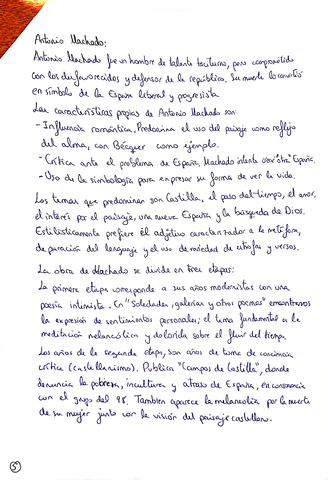 Antonio Machado:
Antonio Machado fue un hombre de talante taciturno, pero comprometido
con los desfavorecidos y defensor de la república. Su muerte lo convirtió
en símbolo de la España liberal y progresista.
Las características propias de Antonio Machado son:
- Influencia romántica. Predomina el uso del paisaje como reflejo
del alma, con Bécquer como ejemplo.
- Crítica ante el problema de España, Machado intenta España.
- Uso de la simbología para expresar su forma de ver la vida.
Los temas que predominan son Castilla, el paso del tiempo, el amor,
el interés por el paisaje, una nueva España y la búsqueda de Dios.
Estilísticamente prefiere el adjetivo caracterizador a la metáfora,
depuración del lenguaje y el uso de variedad de estrofas y versos.
La obra de Machado se divide en tres etapas:
La primera etapa corresponde a sus años modernistas con una
poesía intimista. En "Soledades, galerías y otros poemas" encontramos
la expresión de sentimientos personales; el tema fundamental es la
meditación melancólica y dolorida sobre el fluir del tiempo.
Los años de la segunda etapa, son años de toma de conciencia
crítica (castellanismo). Publica "Campos de Castilla", donde
denuncia la pobreza, incultura y atraso de España, en consonancia
con el grupo del 98. Tambien aparece la melancolía por la muerte
de su mujer junto con la visión del paisaje castellano.
5